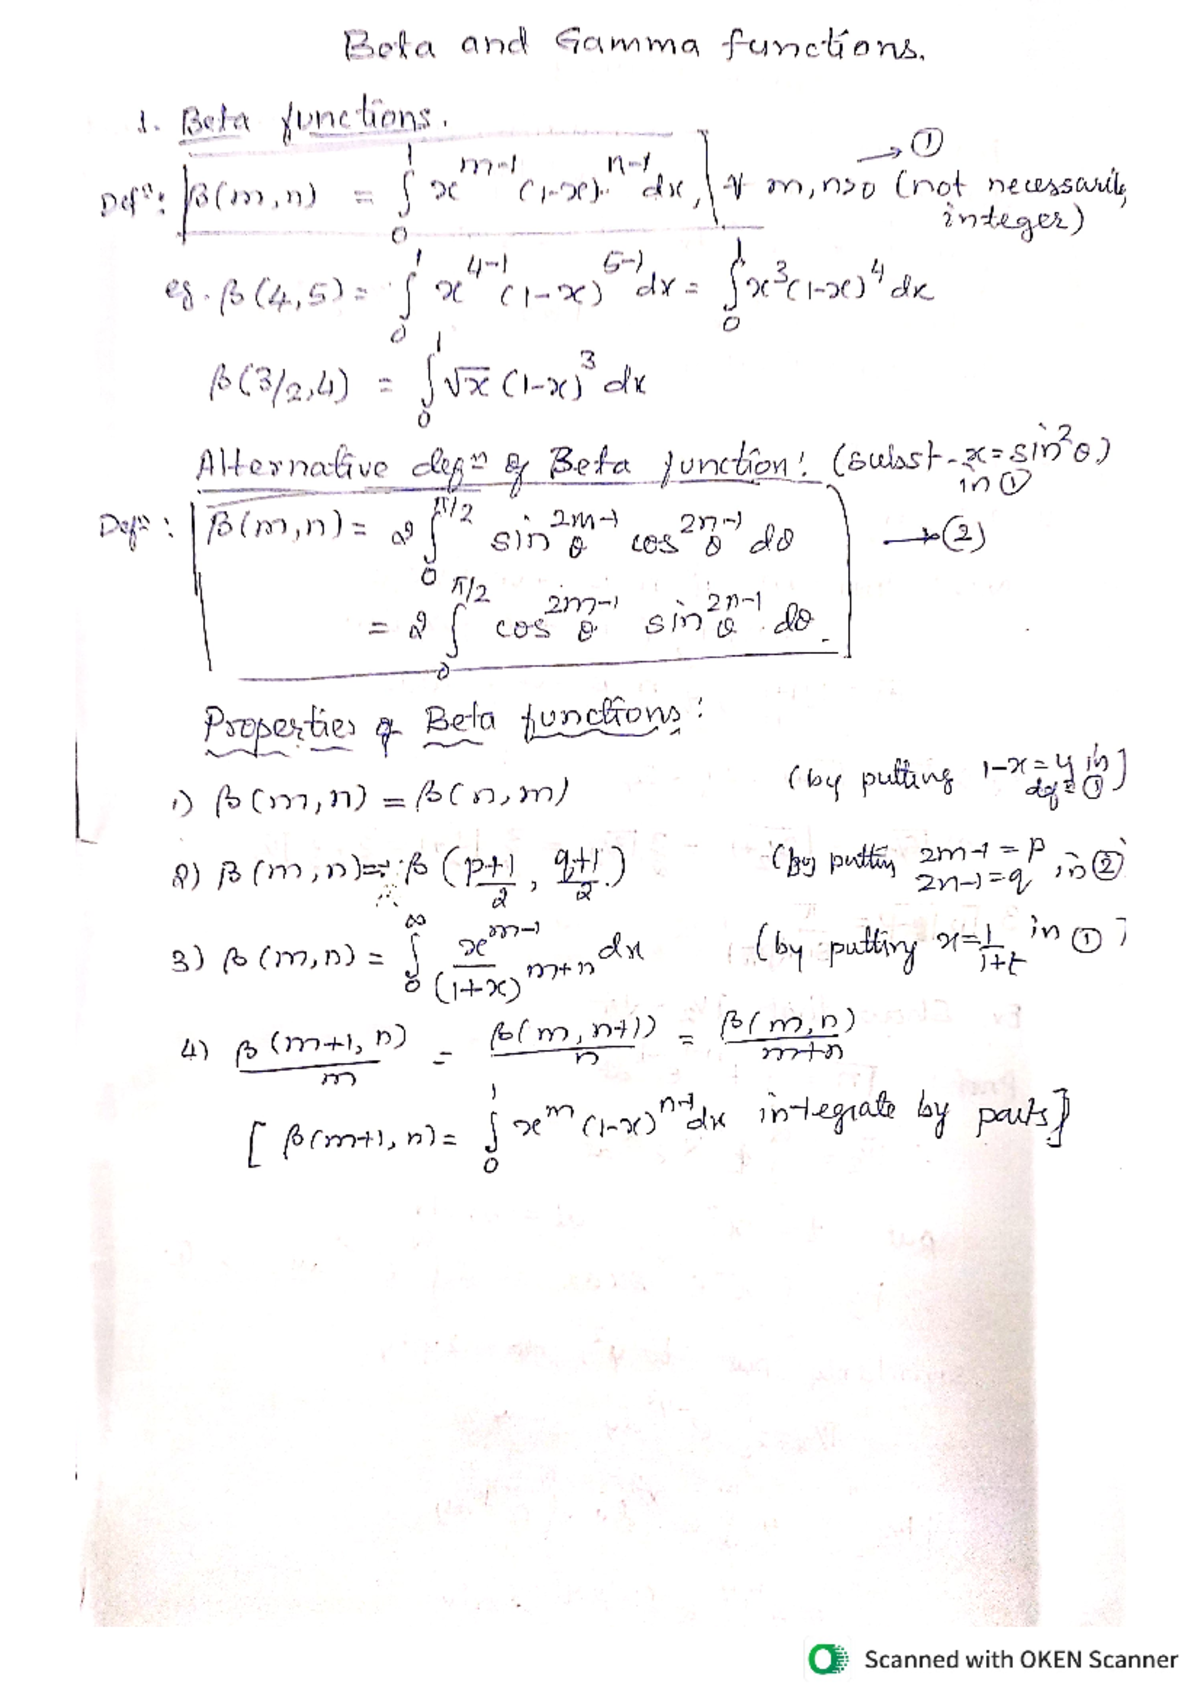 Beta and Gamma functions.
1. Beta functions.
Defⁿ: β(m,n) = ∫₀¹ x^{m-1} (1-x)^{n-1} dx, ∀ m,n>0 (not necessarily integer) → ①
eg. β(4,5) = ∫₀¹ x^{4-1} (1-x)^{5-1} dx = ∫₀¹ x³(1-x)⁴ dx
β(3/2,4) = ∫₀¹ √x (1-x)³ dx
Alternative defⁿ of Beta function: (subst. x = sin²θ in ①)
Defⁿ: β(m,n) = 2 ∫₀^{π/2} sin^{2m-1}θ cos^{2n-1}θ dθ → (2)
= 2 ∫₀^{π/2} cos^{2m-1}θ sin^{2n-1}θ dθ.
Properties of Beta functions:
1) β(m,n) = β(n,m) (by putting 1-x = y in ①)
2) β(m,n) = β((p+1)/2, (q+1)/2) (by putting 2m-1 = p 2n-1 = q in ②)
3) β(m,n) = ∫₀^∞ x^{m-1}/(1+x)^{m+n} dx (by putting x = 1/(1+t) in ①)
4) β(m+1, n)/m = β(m, n+1)/n = β(m,n)/(m+n)
[β(m+1, n) = ∫₀¹ x^m (1-x)^{n-1} dx integrate by parts]
Scanned with OKEN Scanner